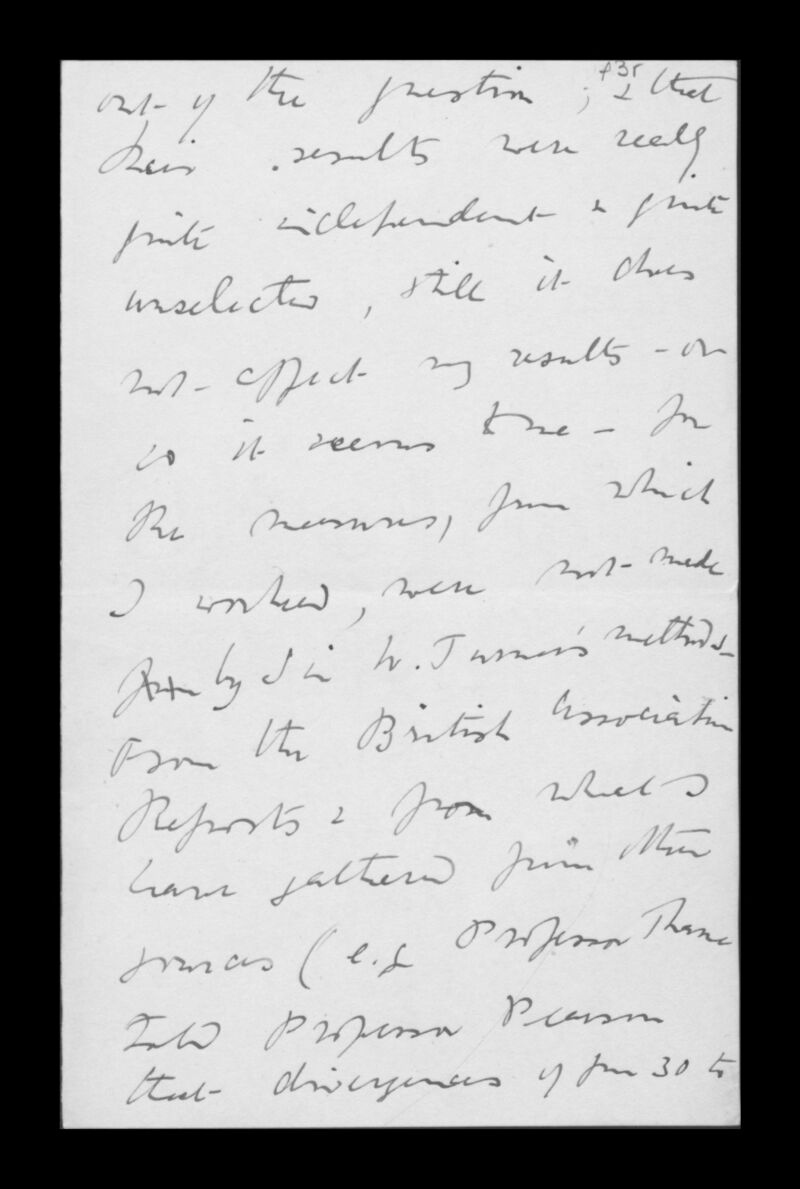 f3r
out of the question ; & that
their results were really
quite independent & quite
unselected , still it does
not - affect my results - or
so it seems to me - for
the measures, from which
I worked , were not - made
from by Sir W. Turner's methods -
From the British Association
Reports & from what I
have gathered from other
sources ( e.g Professor Thane
told Professor Pearson
that divergences of from 30 to